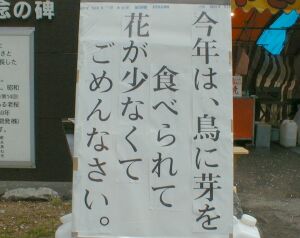 今年は、鳥に芽を
食べられて
花が少なくて
ごめんなさい。
念の碑
昭和